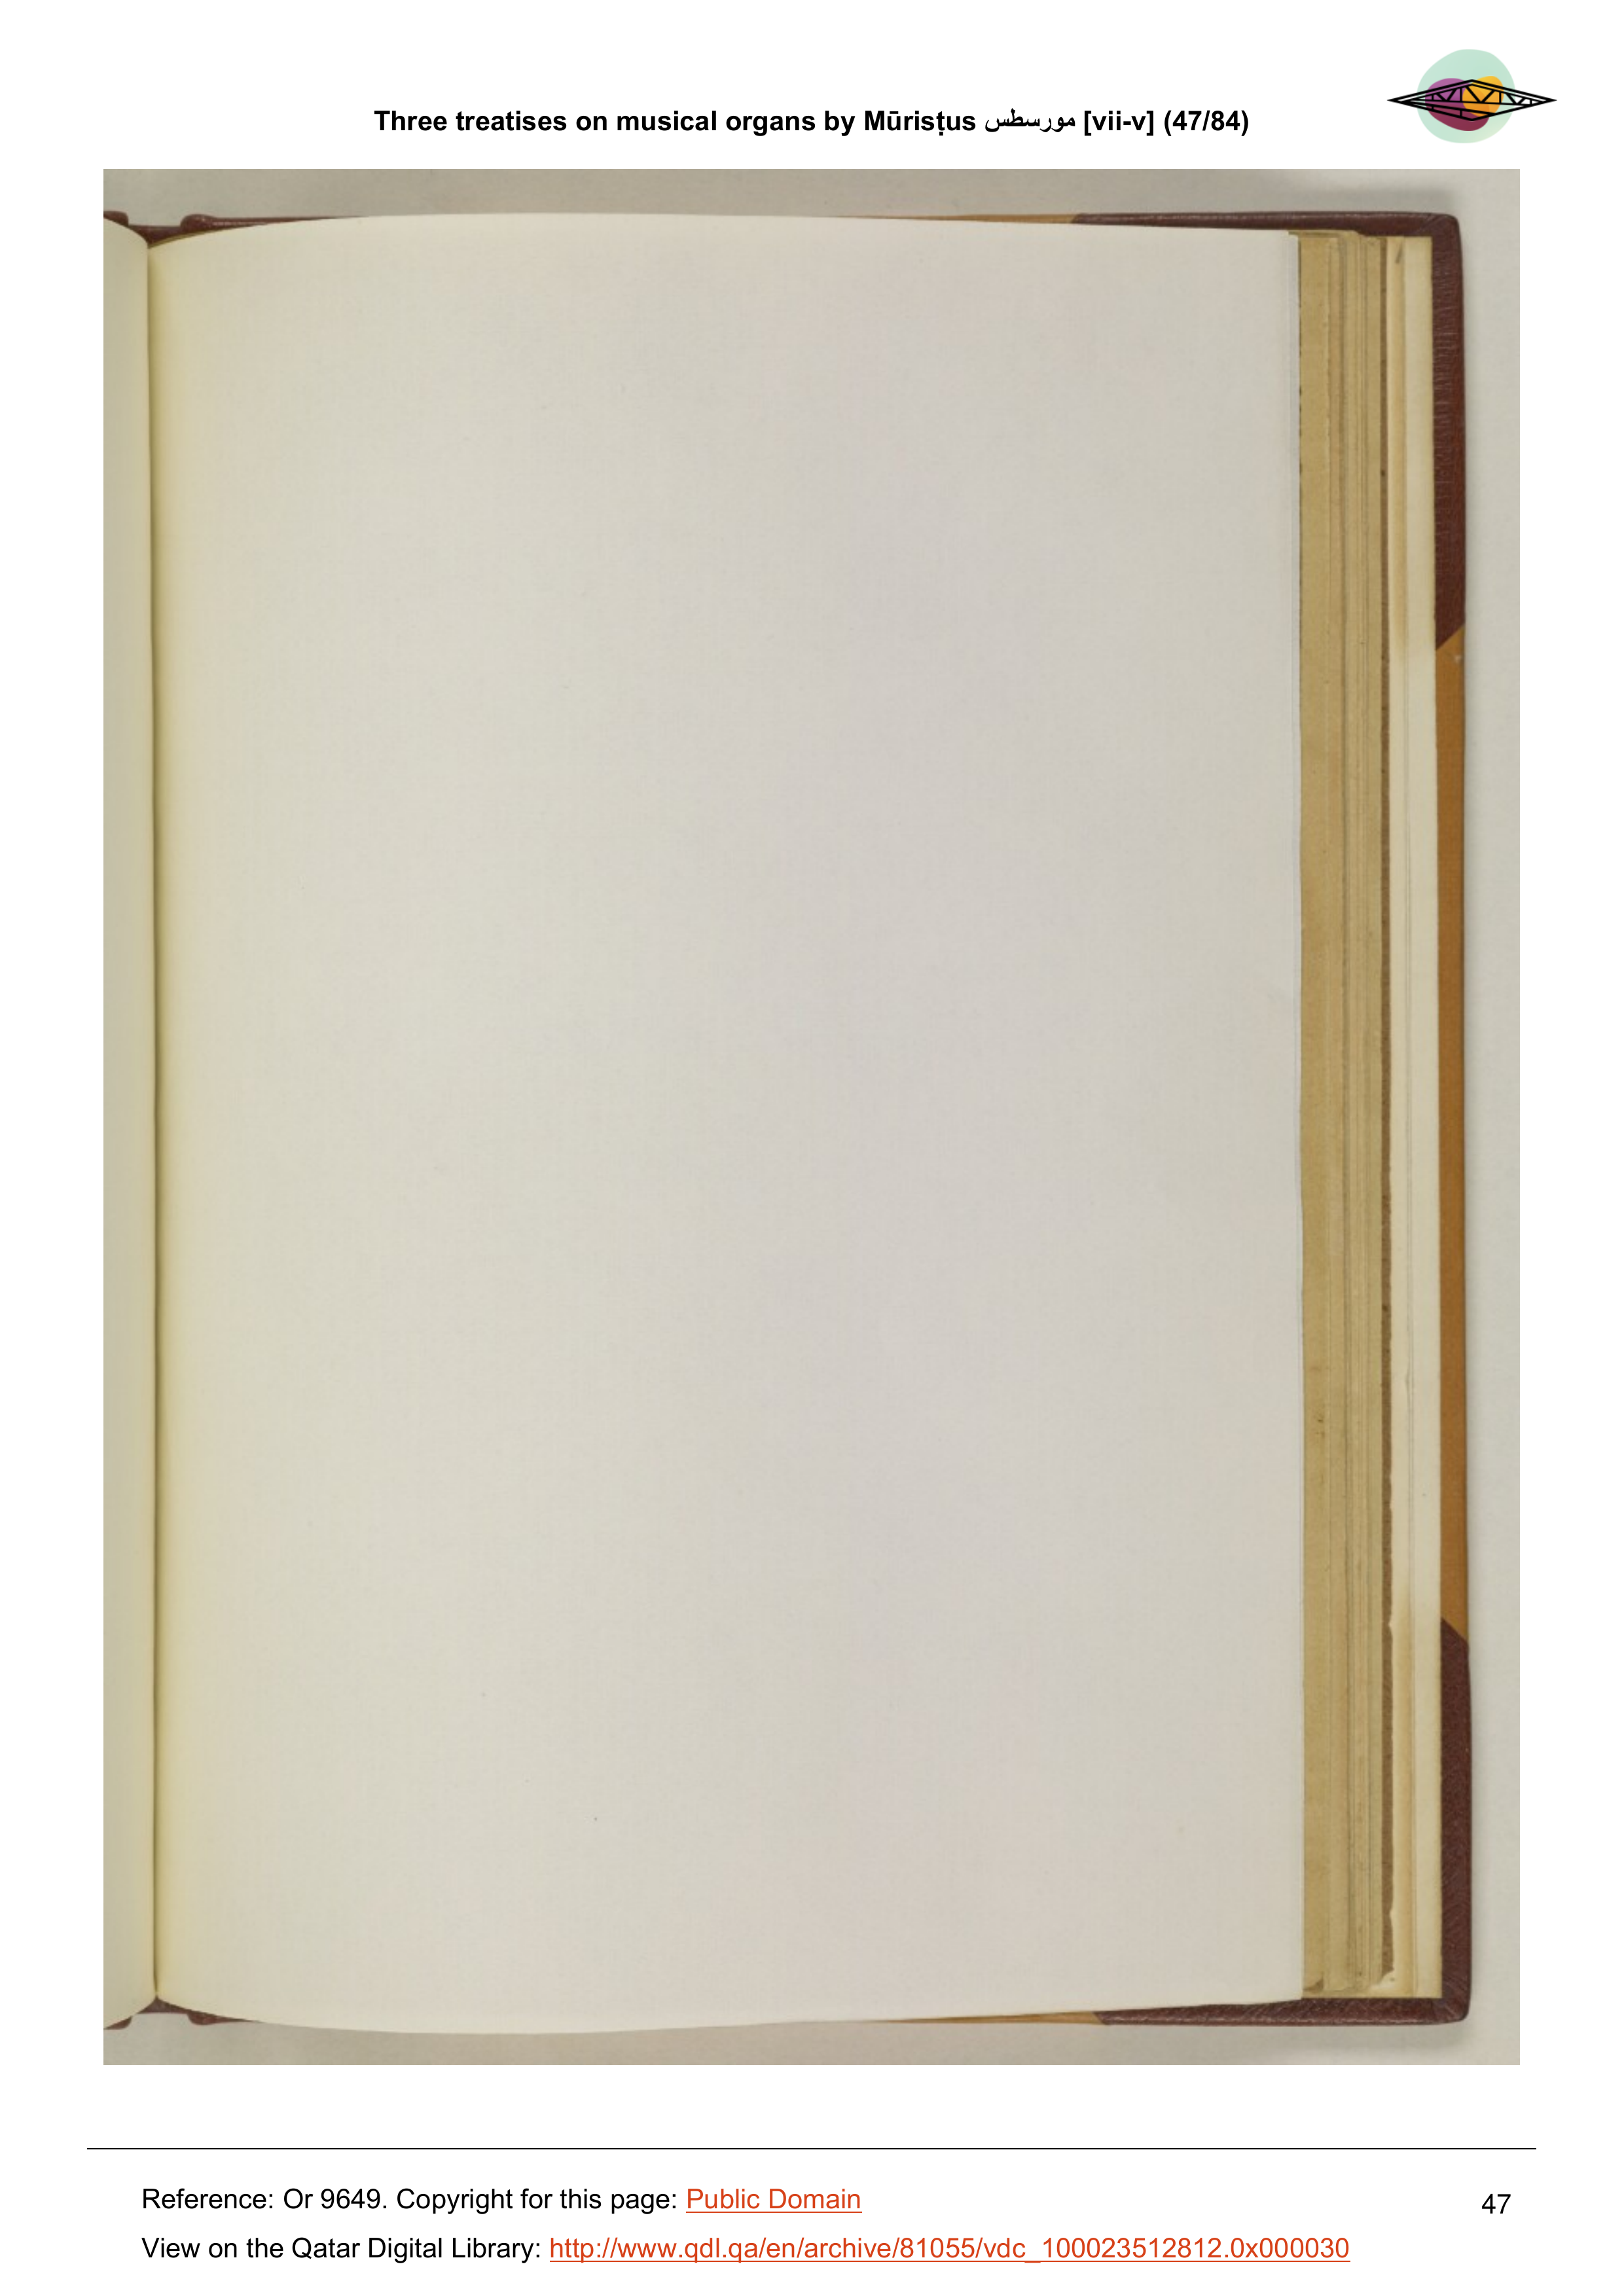 Three treatises on musical organs by Mūrisṭus مورسطس [vii-v] (47/84)
Reference: Or 9649. Copyright for this page: Public Domain
47
View on the Qatar Digital Library: http://www.qdl.qa/en/archive/81055/vdc_100023512812.0x000030